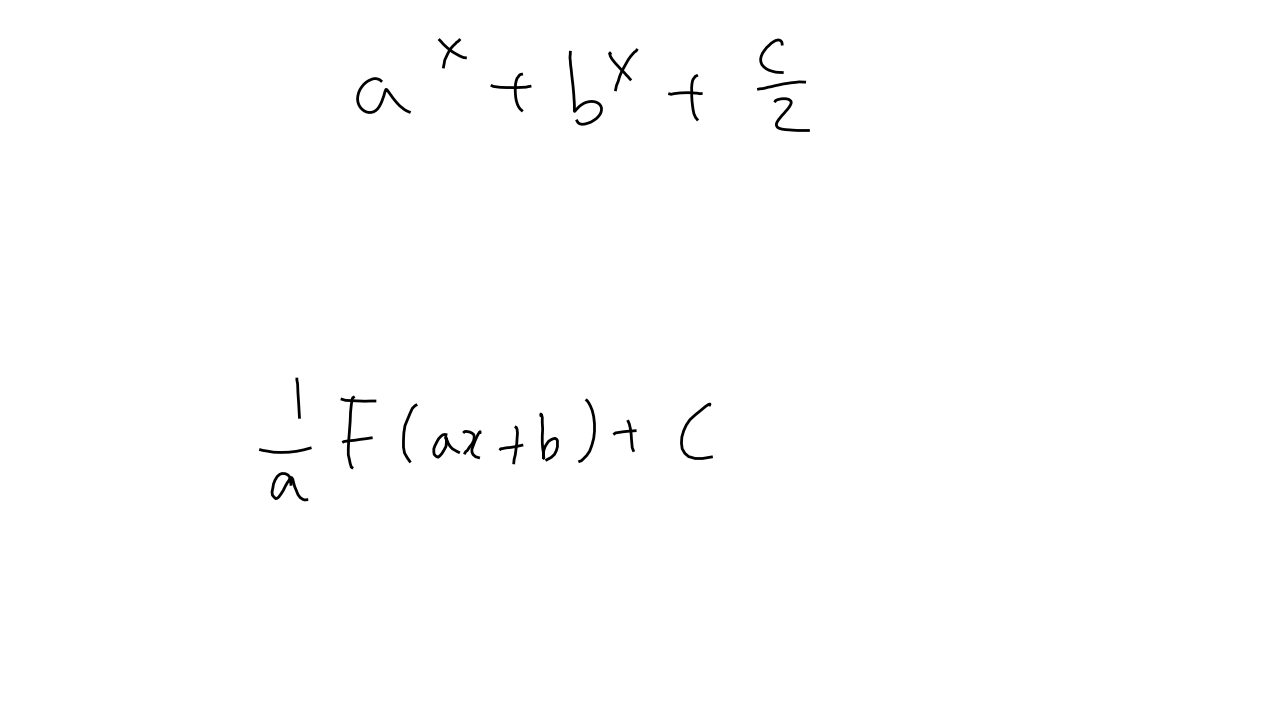 a^x + b^x + c/2
1/a F(ax+b) + C